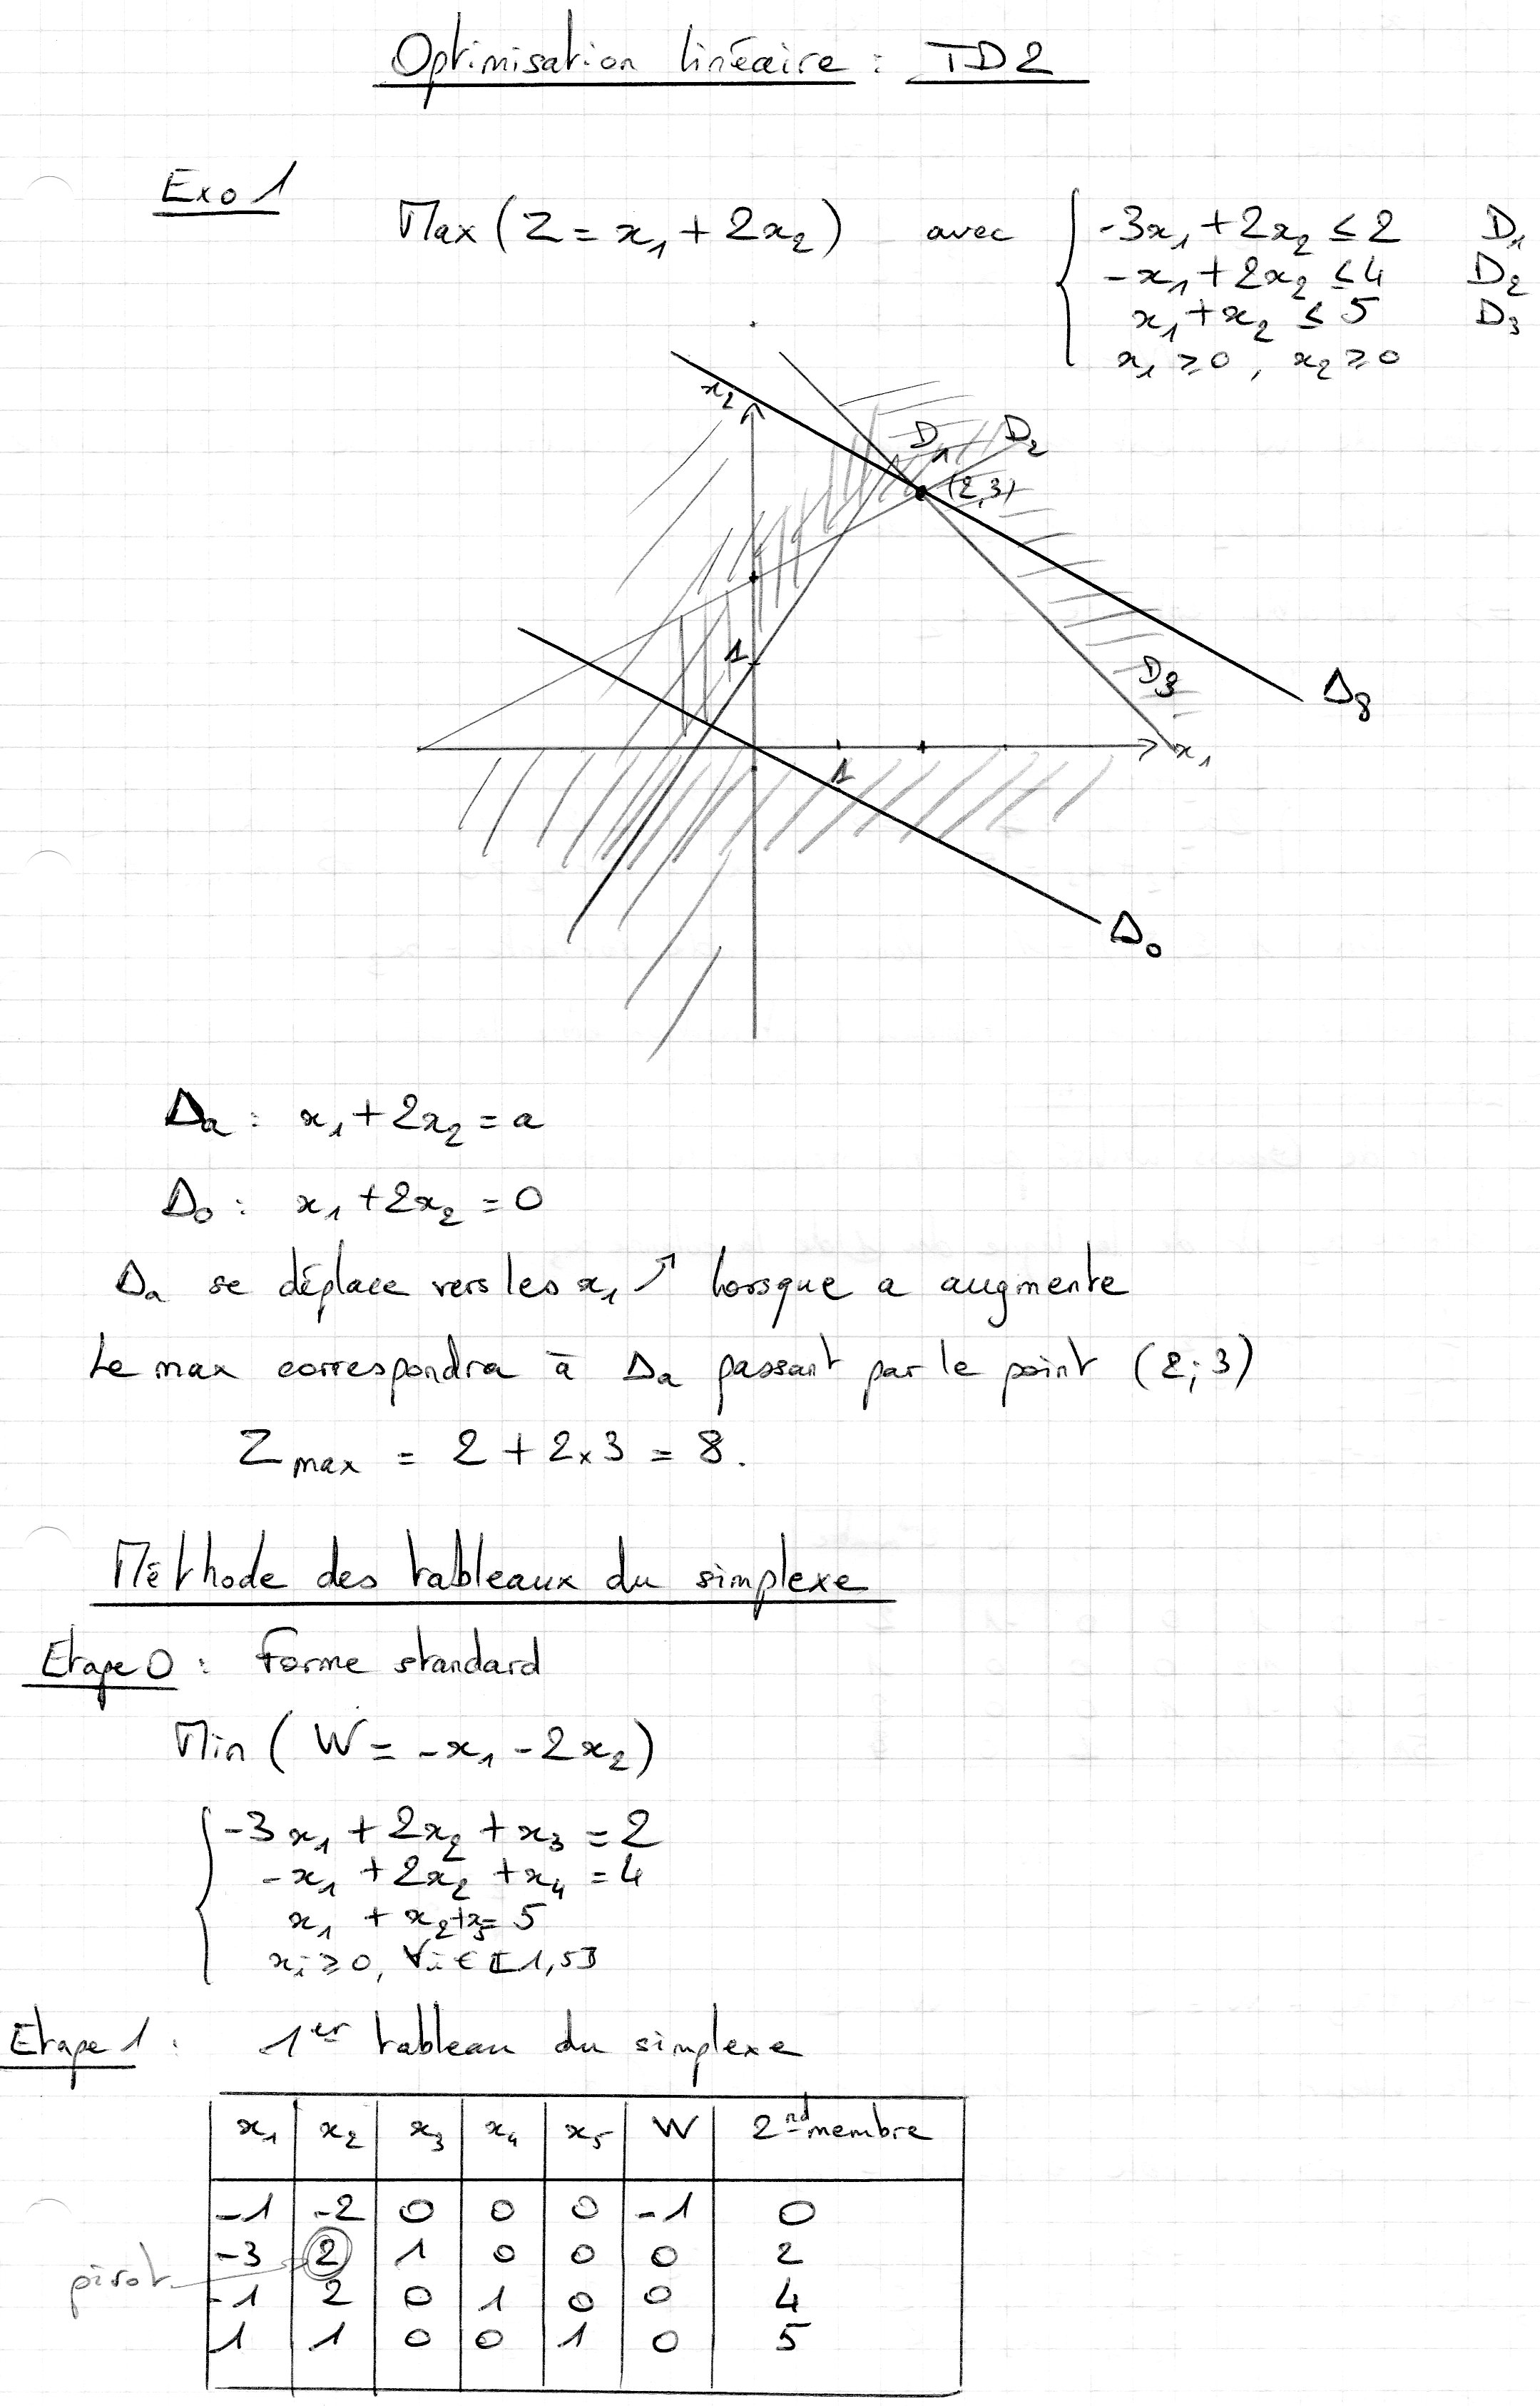 Optimisation linéaire : TD2
Exo 1
Max (Z = x₁ + 2x₂) avec
-3x₁ + 2x₂ ≤ 2 D₁
-x₁ + 2x₂ ≤ 4 D₂
x₁ + x₂ ≤ 5 D₃
x₁ ≥ 0, x₂ ≥ 0
x₂
D₁ D₂
(2,3)
1
D₃
Δ₈
x₁
1
Δ₀
Δₐ : x₁ + 2x₂ = a
Δ₀ : x₁ + 2x₂ = 0
Δₐ se déplace vers les x₁ ↗ lorsque a augmente
Le max correspondra à Δₐ passant par le point (2;3)
Z max = 2 + 2×3 = 8.
Méthode des tableaux du simplexe
Etape 0 : Forme standard
Min (W = -x₁ - 2x₂)
-3x₁ + 2x₂ + x₃ = 2
-x₁ + 2x₂ + x₄ = 4
x₁ + x₂ + x₅ = 5
xᵢ ≥ 0, ∀i ∈ ⟦1,5⟧
Etape 1 : 1er tableau du simplexe
x₁ x₂ x₃ x₄ x₅ W 2nd membre
-1 -2 0 0 0 -1 0
-3 2 1 0 0 0 2
pivot
-1 2 0 1 0 0 4
1 1 0 0 1 0 5